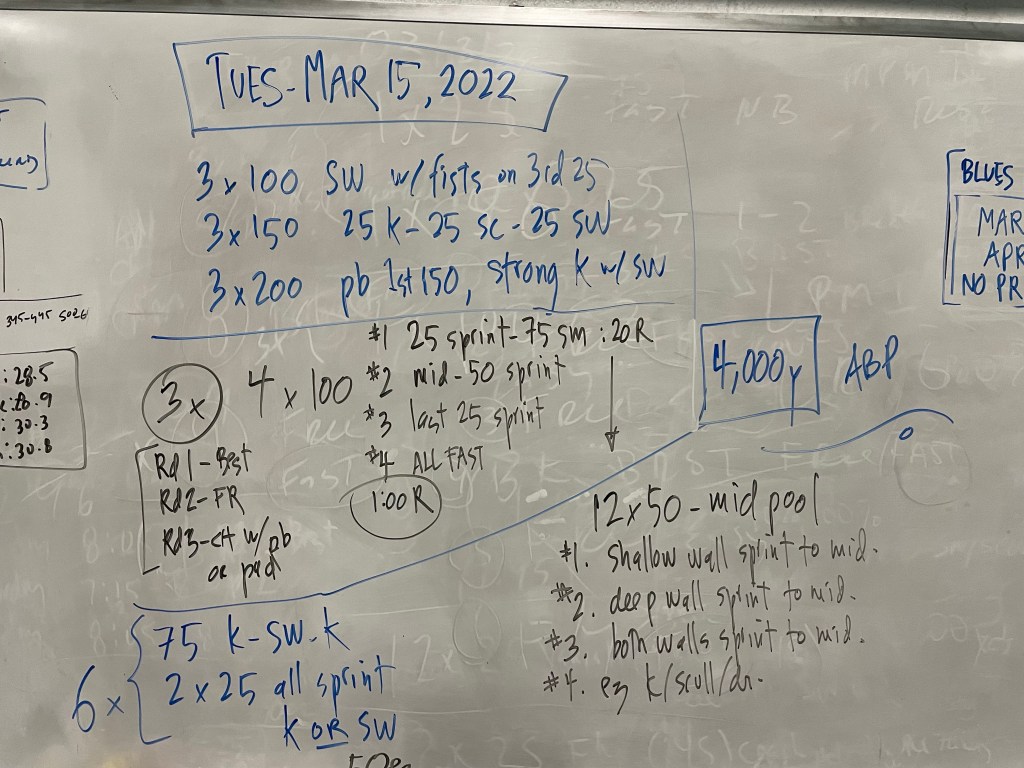 TUES-MAR 15, 2022
3 x 100 SW w/ fists on 3rd 25
3 x 150 25 K - 25 SC - 25 SW
3 x 200 pb 1st 150, strong K w/ SW
3x 4 x 100
#1 25 sprint - 75 sm :20R
#2 mid-50 sprint
#3 last 25 sprint
#4 ALL FAST
1:00R
Rd 1 - Best
Rd2 - FR
Rd3 - CH w/ pb
or pad
4,000y ABP
6 x
75 K-SW-K
2 x 25 all sprint
K OR SW
50
12x50 - mid pool
#1. shallow wall sprint to mid.
#2. deep wall sprint to mid.
#3. both walls sprint to mid.
#4. ez K/scull/dr.
BLUES
MAR
APR
NO PR
345-445
:28.5
:30.3
:30.8